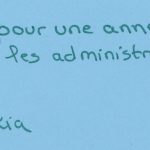 pour une anné
les administr